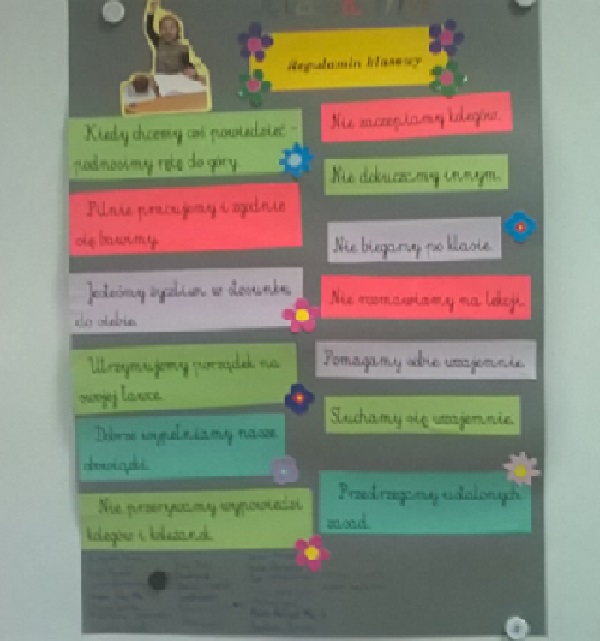 Regulamin klasowy
Kiedy chcemy coś powiedzieć -
podnosimy rękę do góry.
Pilnie pracujemy i zgodnie
się bawimy.
Jesteśmy życzliwi w stosunku
do siebie.
Utrzymujemy porządek na
swojej ławce.
Dobrze wypełniamy nasze
obowiązki.
Nie przerywamy wypowiedzi
kolegów i koleżanek.
Nie zaczepiamy kolegów.
Nie dokuczamy innym.
Nie biegamy po klasie.
Nie rozmawiamy na lekcji.
Pomagamy sobie wzajemnie.
Słuchamy się wzajemnie.
Przestrzegamy ustalonych
zasad.